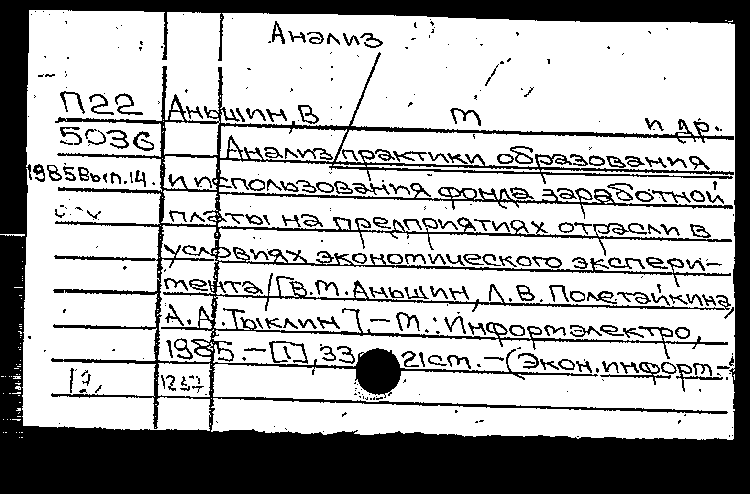 Анализ
П22 Аньшин, В М и др.
5036 Анализ практики образования
1985 Вып. 14. и использования фонда заработной
платы на предприятиях отрасли в
условиях экономического экспери-
мента / [В.М. Аньшин, Л.В. Полетайкина,
А.А. Тыклин]. – М.: Информэлектро,
1985. – [1], 33 21 см. – (Экон. информ. –
12, 1237